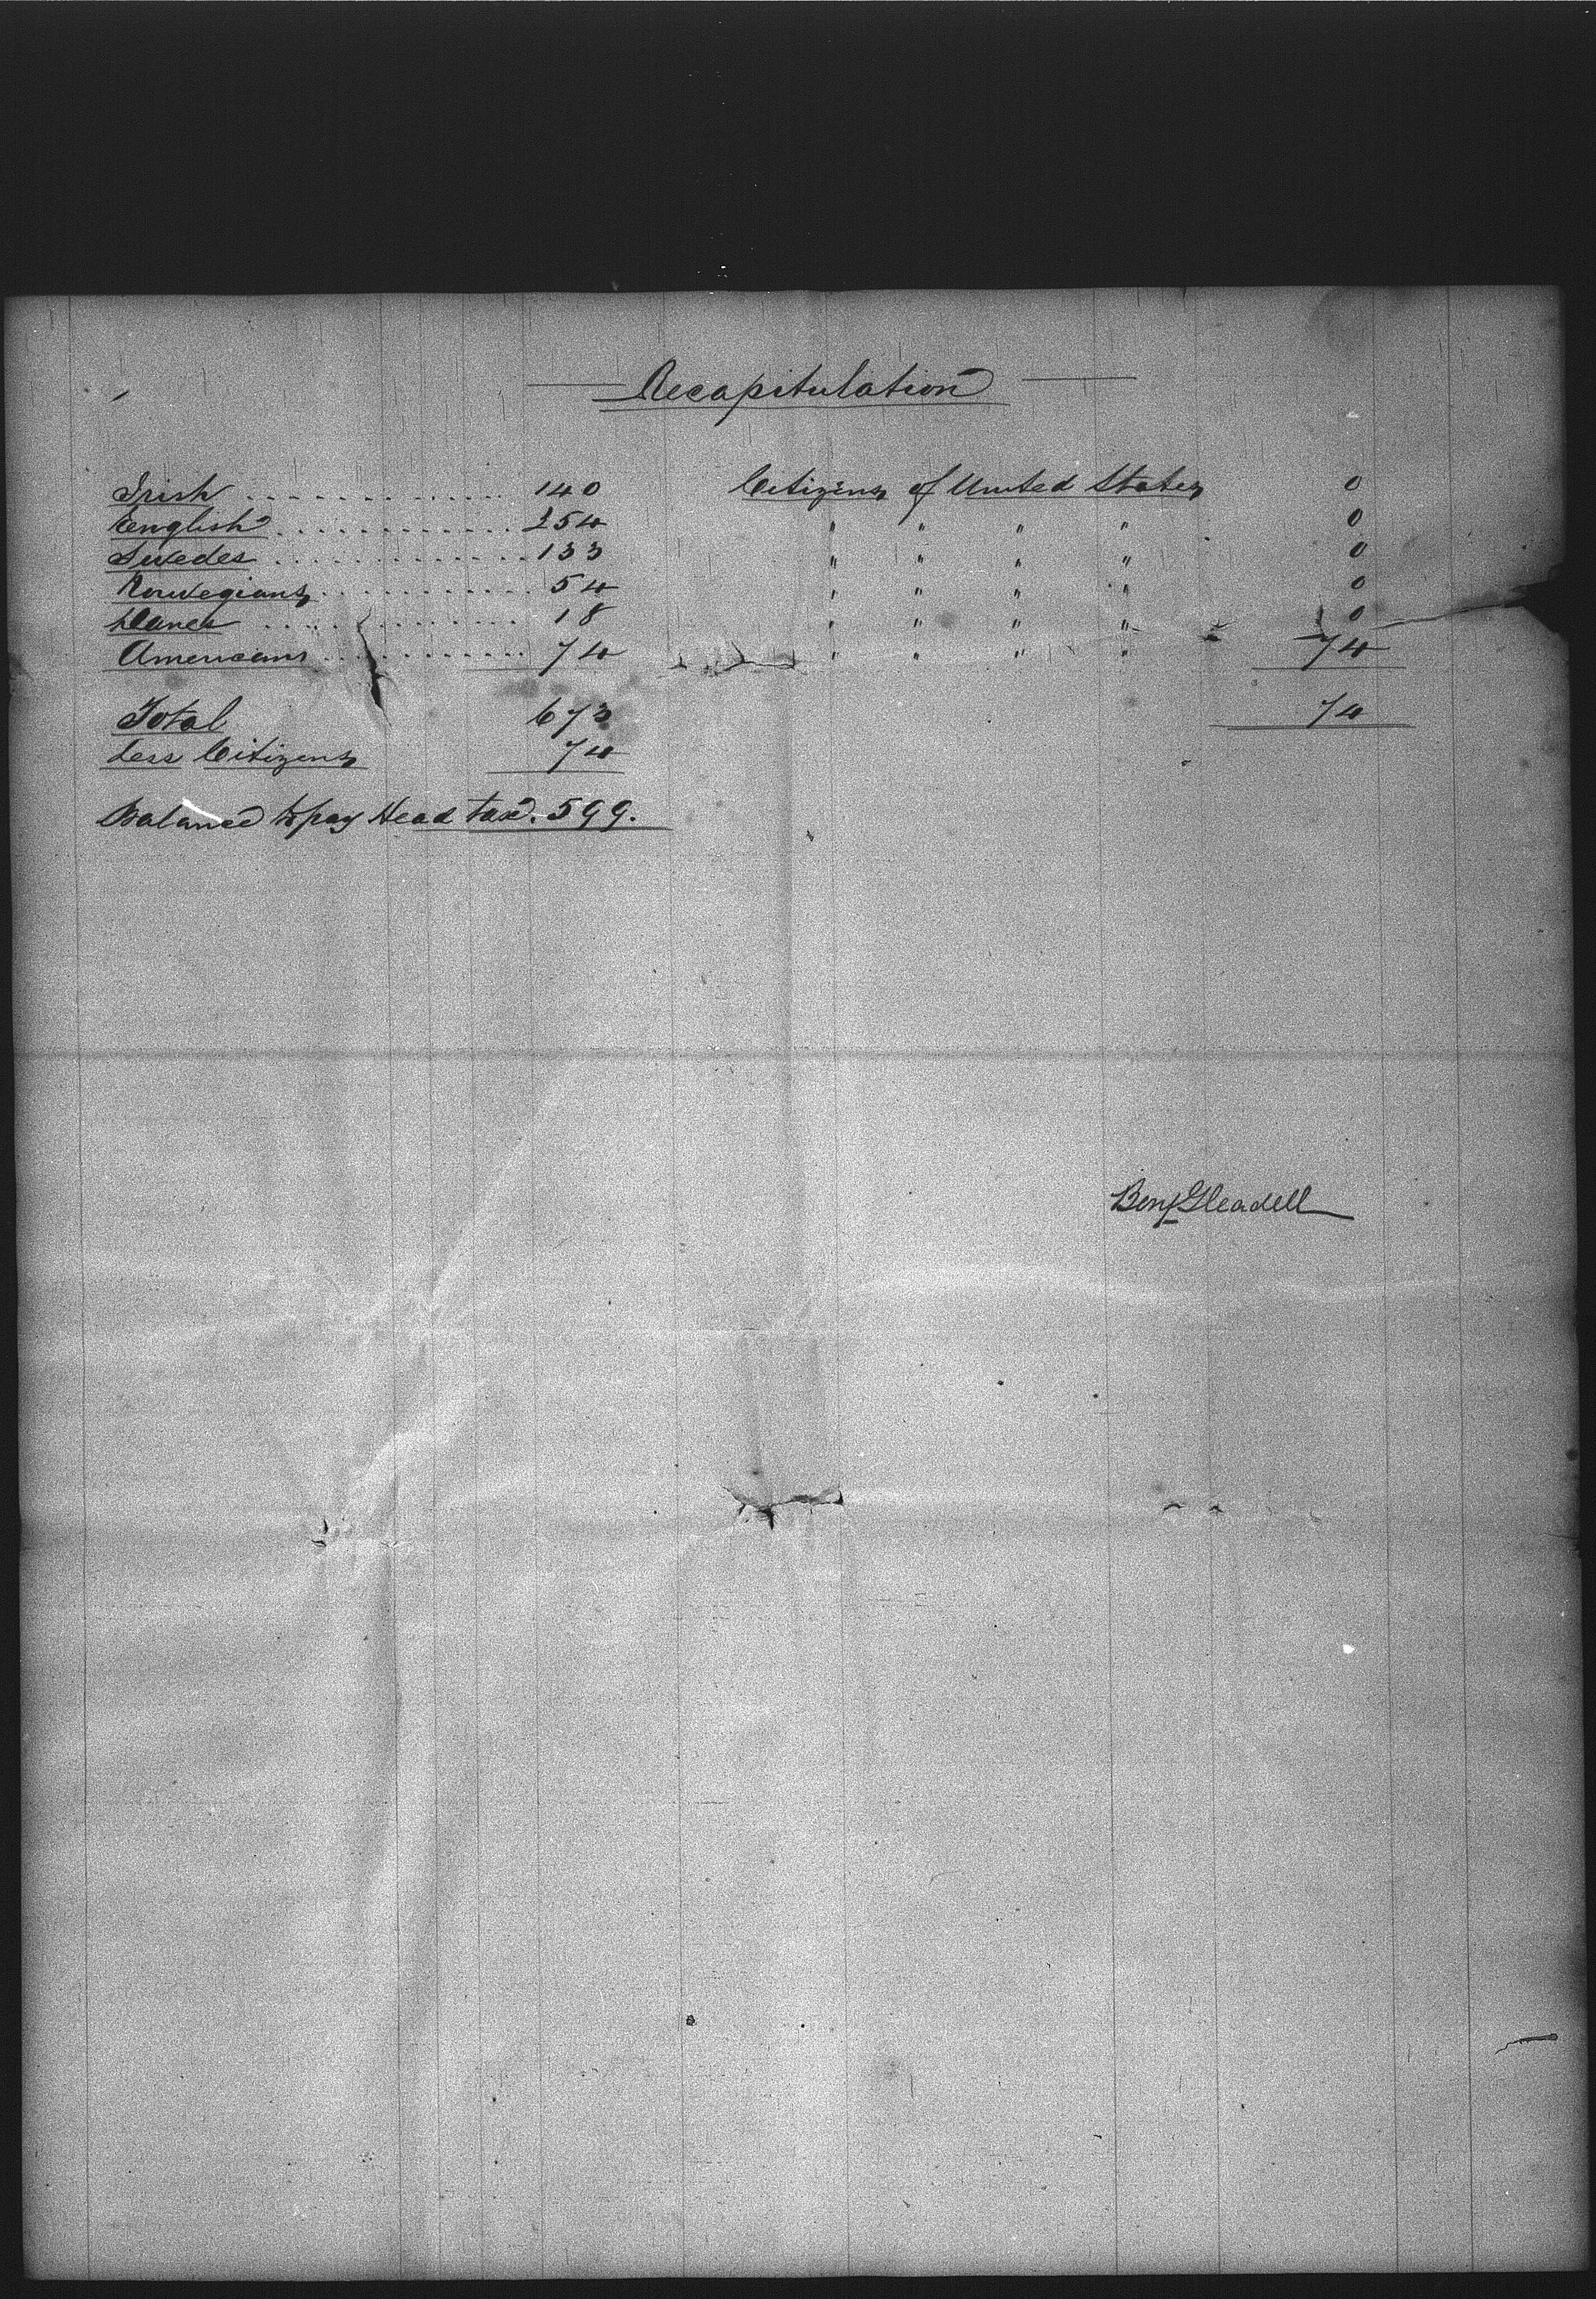 Recapitulation
Irish ............. 140 Citizens of United States 0
English ............ 254 " " " " 0
Swedes ............. 133 " " " " 0
Norwegians ........... 54 " " " " 0
Danes ............. 18 " " " " 0
Americans ........... 74 " " " " 74
Total 673 74
Less Citizens 74
Balance to pay Head tax. 599.
Benj Gleadell